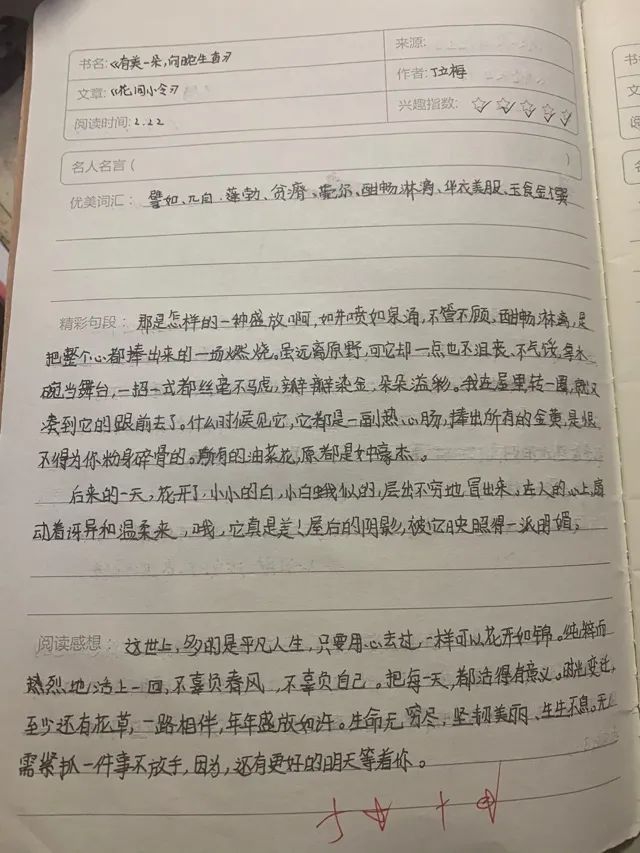 书名:《有美一朵,向晚生香》
来源:
文章:《花间小令》
作者:丁立梅
阅读时间:2.22
兴趣指数:☆☆☆☆☆
名人名言( )
优美词汇:譬如、兀自、蓬勃、贫瘠、酣畅淋漓、华衣美服、玉食金馔
精彩句段:那是怎样的一种盛放啊,如井喷如泉涌,不管不顾、酣畅淋漓,是
把整个心都捧出来的一场燃烧。虽远离原野,可它却一点也不沮丧、不气馁,拿水
碗当舞台,一招一式都丝毫不马虎,瓣瓣染金,朵朵溢彩。我在屋里转一圈,就又
凑到它的跟前去了。什么时候见它,它都是一副热心肠,捧出所有的金黄,是恨
不得为你粉身碎骨的。所有的油菜花,原都是女中豪杰。
后来的一天,花开了,小小的白,小白蛾似的,层出不穷地冒出来,在人的心上,扇
动着讶异和温柔来,哦,它真是美!屋后的阴影,被它映照得一派明媚;
阅读感想:这世上,多的是平凡人生,只要用心去过,一样可以花开如锦。纯粹而
热烈地活上一回,不辜负春风,不辜负自己。把每一天,都活得有意义。时光变迁,
至少还有花草,一路相伴,年年盛放如许。生命无穷尽,坚韧美丽、生生不息。无
需紧扒一件事不放手,因为,还有更好的明天等着你。